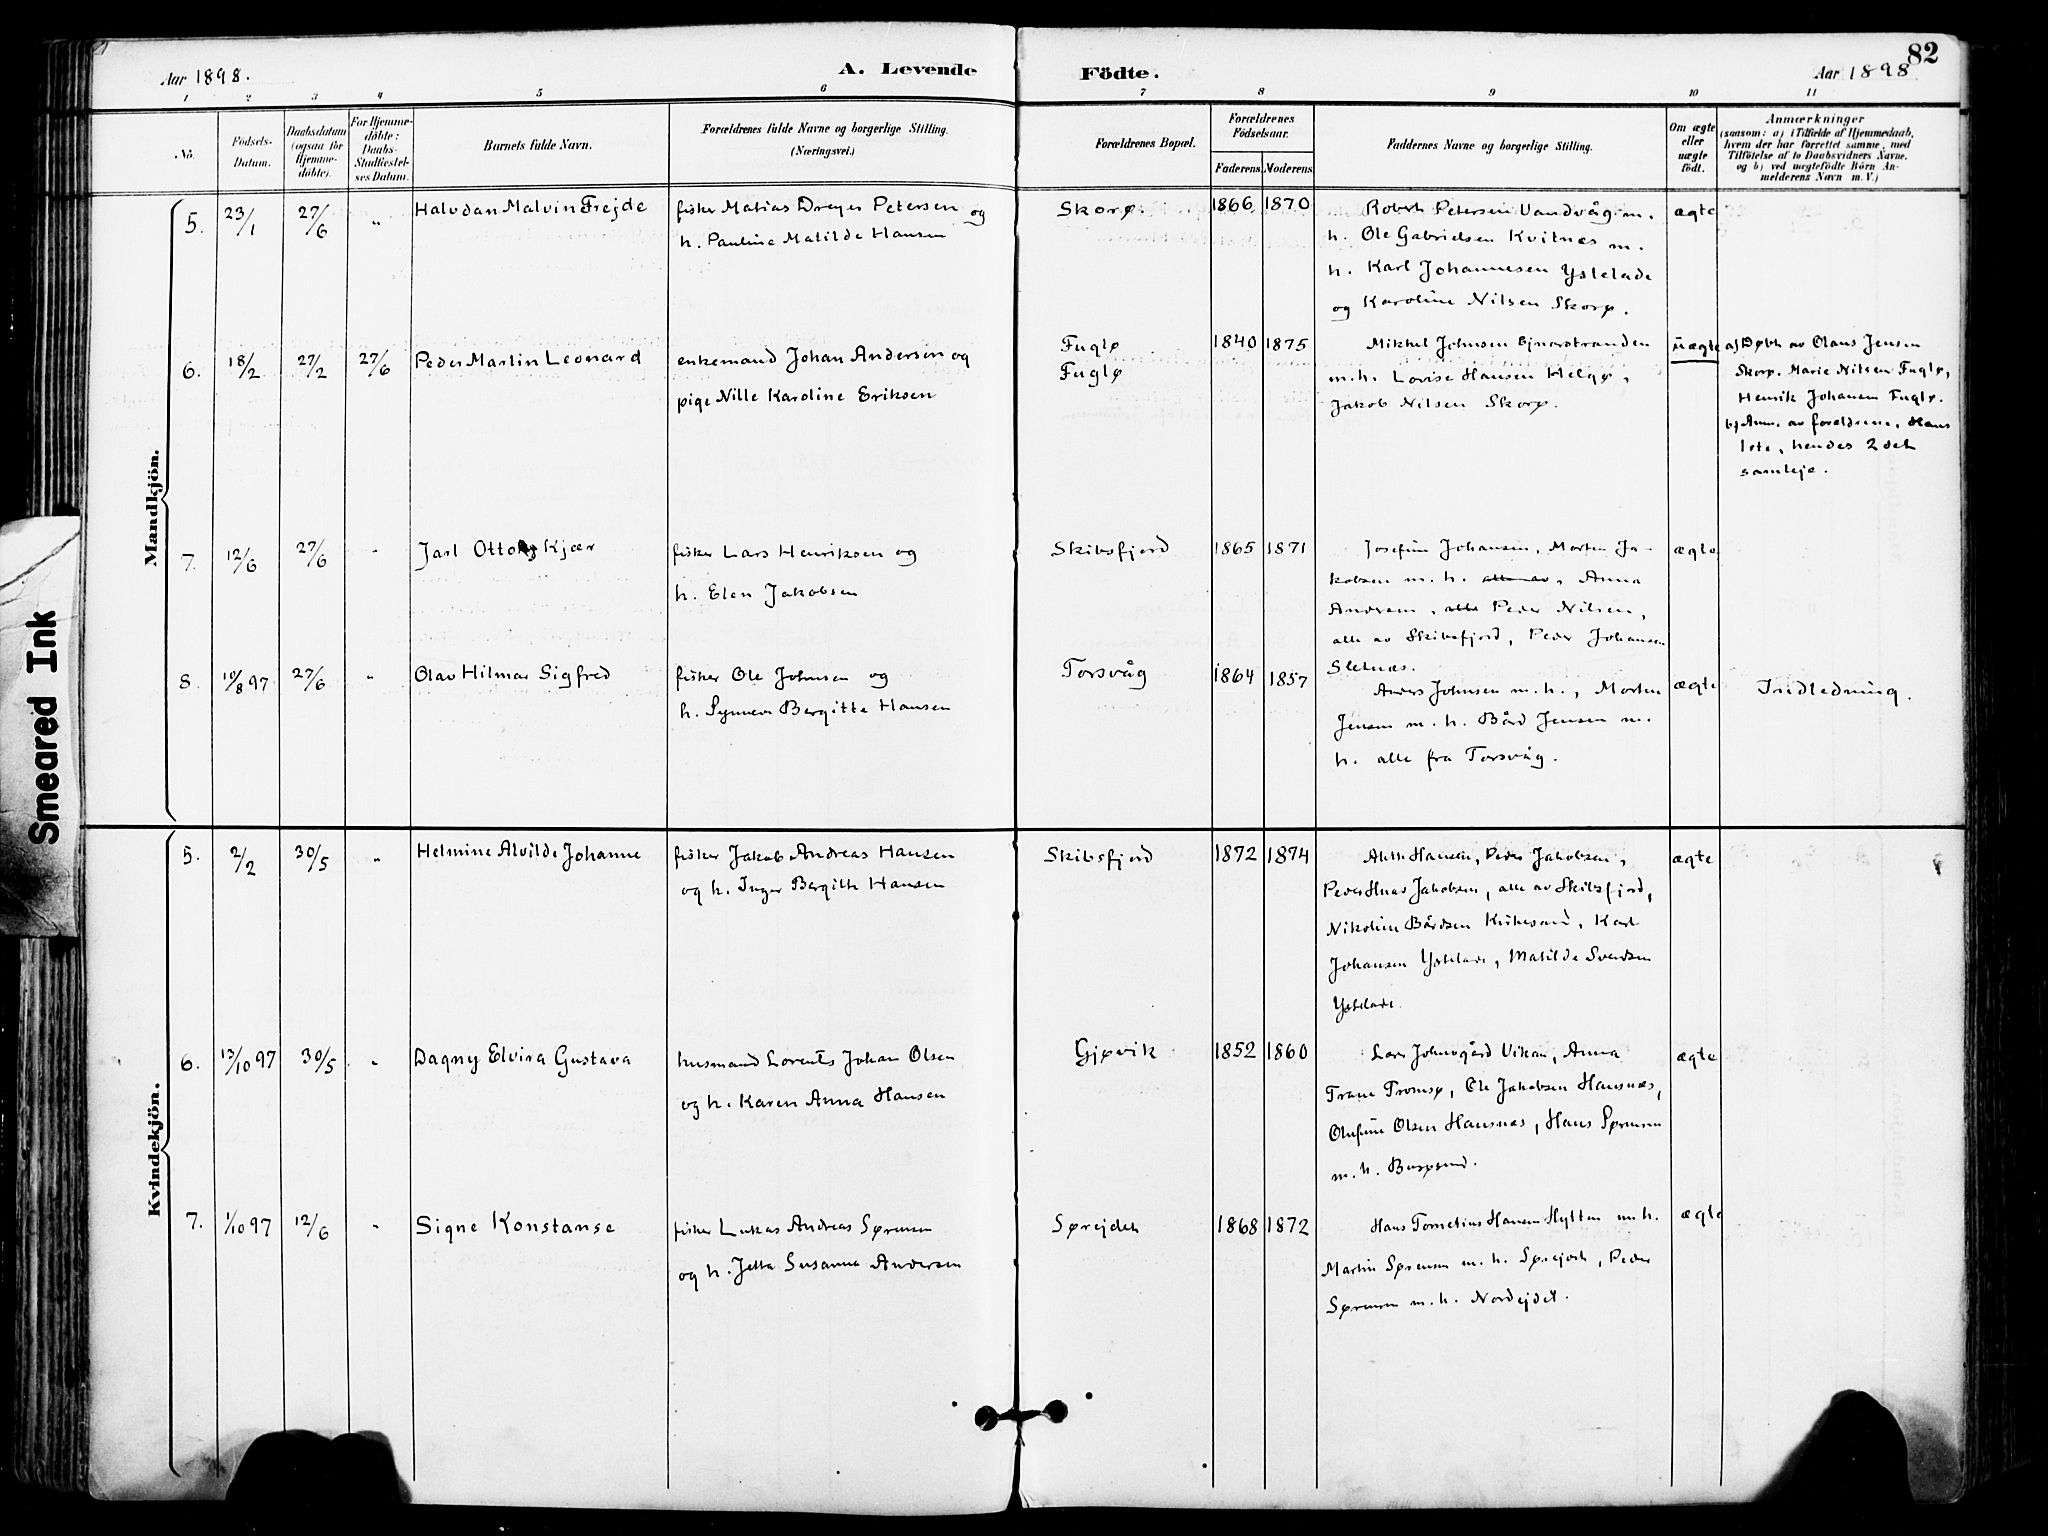 82
Aar 1898.
A. Levende Födte.
Aar 1898
1 2 3 4 5 6 7 8 9 10 11
No.
Födsels-Datum.
Daabsdatum (ogsaa for Hjemme-döbte).
For Hjemme-döbte: Daabs-Stadfæstel-ses Datum.
Barnets fulde Navn.
Forældrenes fulde Navne og borgerlige Stilling.
(Næringsvei.)
Forældrenes Bopæl.
Forældrenes Födselsaar.
Faderens Moderens
Faddernes Navne og borgerlige Stilling.
Om ægte eller uægte födt.
Anmærkninger
(saasom: a) i Tilfælde af Hjemmedaab,
hvem der har forrettet samme, med
Tilföielse af to Daabsvidners Navne,
og b) ved uægtefödte Börn An-
melderens Navn m. V.)
Mandkjön.
5. 23/1 27/6 " Halvdan Malvin Frejde
fisker Matias Dreyer Petersen og
h. Pauline Matilde Hansen
Skorø. 1866 1870
Robert Petersen Vandvåg m.
h. Ole Gabrielsen Kvitnæs m.
h. Karl Johannesen Ystelade
og Karoline Nilsen Skorø.
ægte
6. 18/2 27/2 27/6 Peder Martin Leonard
enkemand Johan Andersen og
pige Nille Karoline Eriksen
Fuglø
Fuglø
1840 1875
Mikkel Johnsen
m.h. Lovise Hansen Helgø,
Jakob Nilsen Skorø.
uægte
a) Døbt av Olaus Jensen
Skorø. Marie Nilsen Fuglø,
Henrik Johansen Fuglø.
b) Anm. av forældrene. Hans
1ste, hendes 2det
samleje.
7. 12/6 27/6 " Jarl Otto Kjær
fisker Lars Henriksen og
h. Elen Jakobsen
Skibsfjord 1865 1871
Josefine Johansen, Morten Ja-
kobsen m. h. alle av, Anna
Andersen, alle Peder Nilsen,
alle av Skibsfjord, Peder Johansen
Sletnæs.
ægte
8. 10/8 97 27/6 " Olav Hilmar Sigfred
fisker Ole Johnsen og
h. Synneva Bergitte Hansen
Torsvåg 1864 1857
Anders Johnsen m. h., Morten
Jensen m. h. Bård Jensen m.
h. alle fra Torsvåg.
ægte
Indledning.
Kvindekjön.
5. 2/2 30/5 " Helmine Alvilde Johanne
fisker Jakob Andreas Hansen
og h. Inger Bergitte Hansen
Skibsfjord 1872 1874
Hansen, Peder Jakobsen,
Peder Jakobsen, alle av Skibsfjord,
Nikoline Bårdsen, Karl
Johansen Ystelade, Matilde Svendsen
Ystelade.
ægte
6. 13/10 97 30/5 " Dagny Elvira Gustava
husmand Lorents Johan Olsen
og h. Karen Anna Hansen
Gjøvik 1852 1860
Lars Vikan, Anna
Tromsø, Ole Jakobsen Hansnæs,
Olufine Olsen Hansnæs, Hans Sørensen
m. h.
ægte
7. 1/10 97 12/6 " Signe Konstanse
fisker Lukas Andreas Sørensen
og h. Jetta Susanna Andersen
Sørejdet 1868 1872
Hans Hansen m. h.
Martin Sørensen m. h. Sørejdet, Peder
Sørensen m. h. Nordejdet.
ægte
Smeared Ink